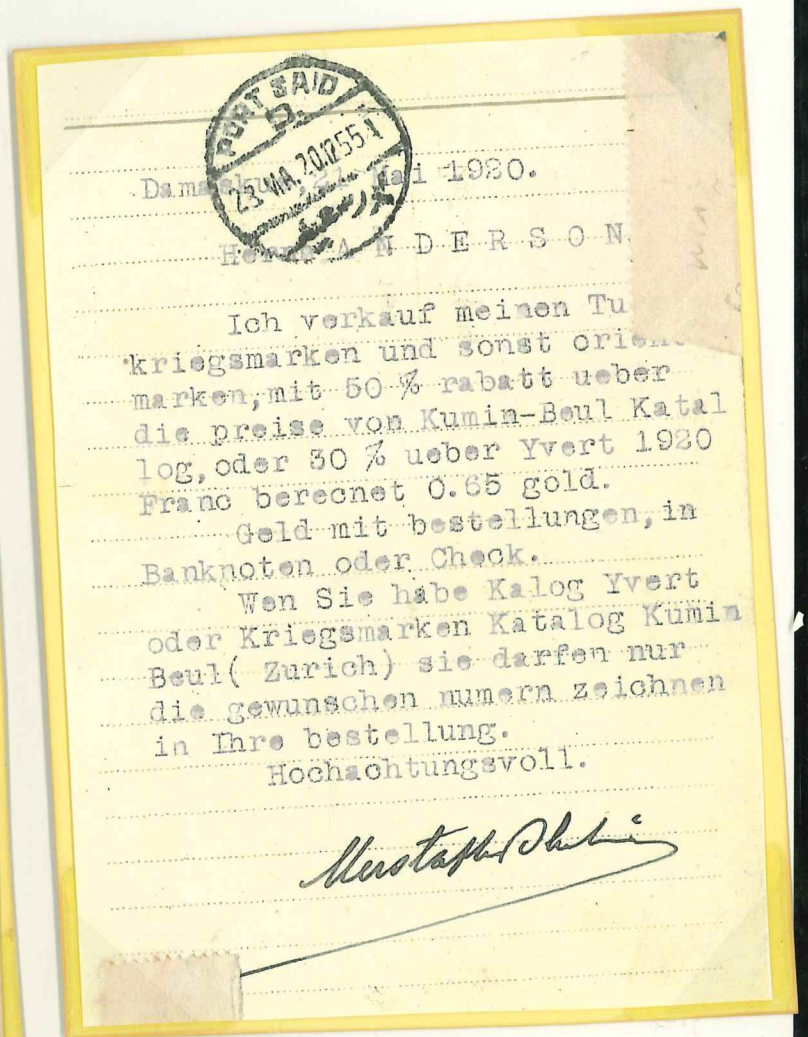 PORT SAID
D.
23 MA. 20. 12 55
بورسعيد
Damaskus, 21 Mai 1920.
Herrn A N D E R S O N
Ich verkauf meinen Tu
kriegsmarken und sonst orient
marken, mit 50 % rabatt ueber
die preise von Kumin-Beul Katal
log, oder 30 % ueber Yvert 1920
Franc berecnet 0.65 gold.
Geld mit bestellungen, in
Banknoten oder Check.
Wen Sie habe Kalog Yvert
oder Kriegsmarken Katalog Kumin
Beul( Zurich) sie darfen nur
die gewunschen numern zeichnen
in Ihre bestellung.
Hochachtungsvoll.